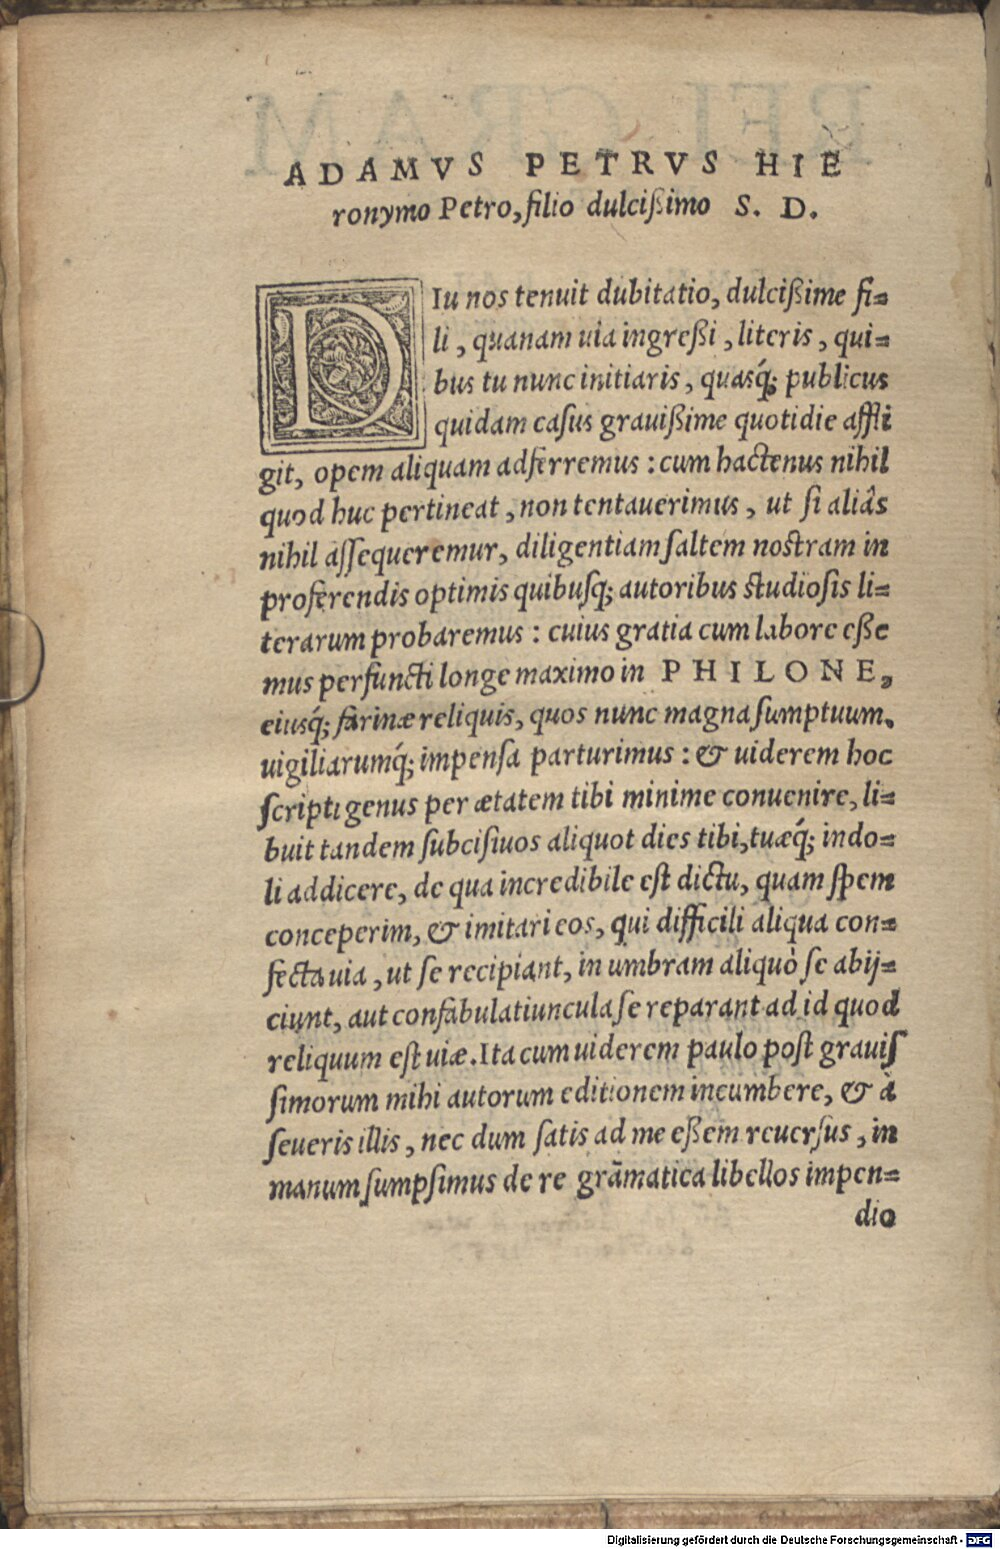 ADAMVS PETRVS HIE
ronymo Petro, filio dulcißimo S. D.
DIu nos tenuit dubitatio, dulcißime fi=
li, quanam uia ingreßi, literis, qui=
bus tu nunc initiaris, quasq́; publicus
quidam casus grauißime quotidie affli
git, opem aliquam adferremus: cum hactenus nihil
quod huc pertineat, non tentauerimus, ut si aliâs
nihil assequeremur, diligentiam saltem nostram in
proferendis optimis quibusq; autoribus studiosis li=
terarum probaremus: cuius gratia cum labore eße
mus perfuncti longe maximo in PHILONE,
eiusq́; farinæ reliquis, quos nunc magna sumptuum,
uigiliarumq́; impensa parturimus: & uiderem hoc
scripti genus per ætatem tibi minime conuenire, li=
buit tandem subcisiuos aliquot dies tibi, tuæq́; indo=
li addicere, de qua incredibile est dictu, quam spem
conceperim, & imitari eos, qui difficili aliqua con=
fecta uia, ut se recipiant, in umbram aliquò se abij=
ciunt, aut confabulatiuncula se reparant ad id quod
reliquum est uiæ. Ita cum uiderem paulo post grauis
simorum mihi autorum editionem incumbere, & à
seueris illis, nec dum satis ad me eßem reuersus, in
manum sumpsimus de re grãmatica libellos impen=
dio
Digitalisierung gefördert durch die Deutsche Forschungsgemeinschaft - DFG